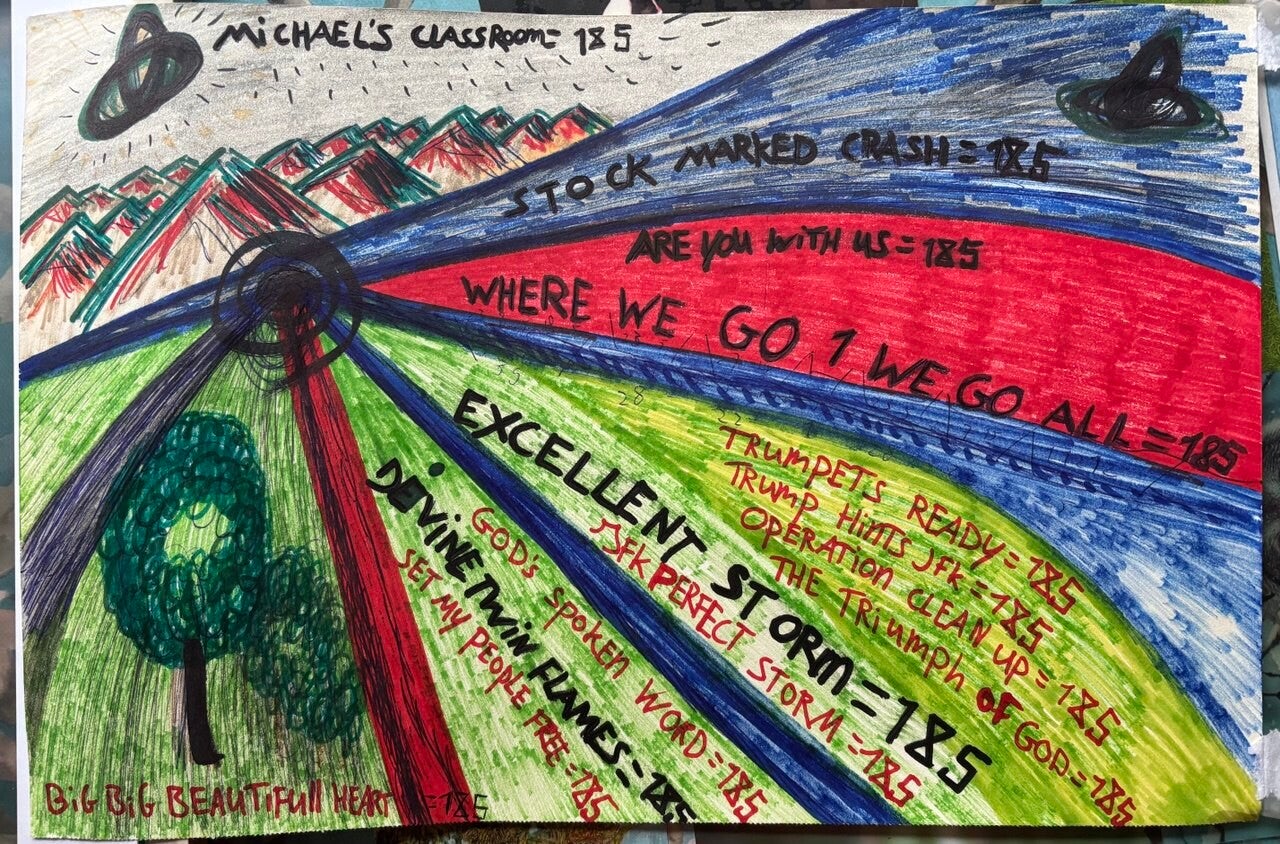 MiCHAEL'S CLASSROOM = 185
STOCK MARKED CRASH = 185
ARE YOU WITH US = 185
WHERE WE GO 1 WE GO ALL = 185
TRUMPETS READY = 185
TRUMP HiNTS JFk = 185
OPERATION CLEAN UP = 185
THE TRiUMPH OF GOD = 185
EXCELLENT STORM = 185
JFK PERFECT STORM = 185
GOD's SPOKEN WORD = 185
DEViNE TWiN FLAMES = 185
SET MY PEOPLE FREE = 185
BiG BiG BEAUTiFUll HEART = 185